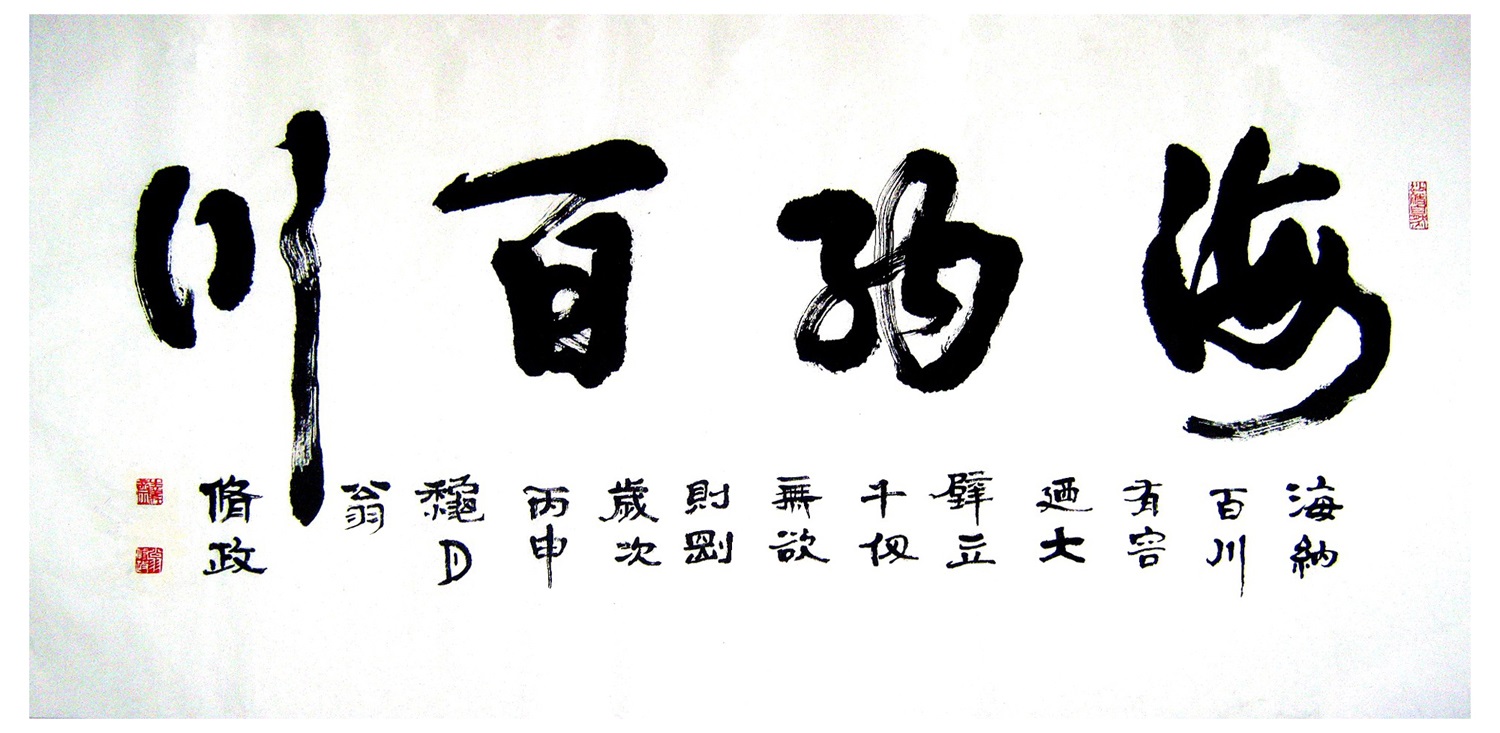 海納百川
海納
百川
有容
廼大
壁立
千仞
無欲
則剛
歲次
丙申
龝月
翁
脩政